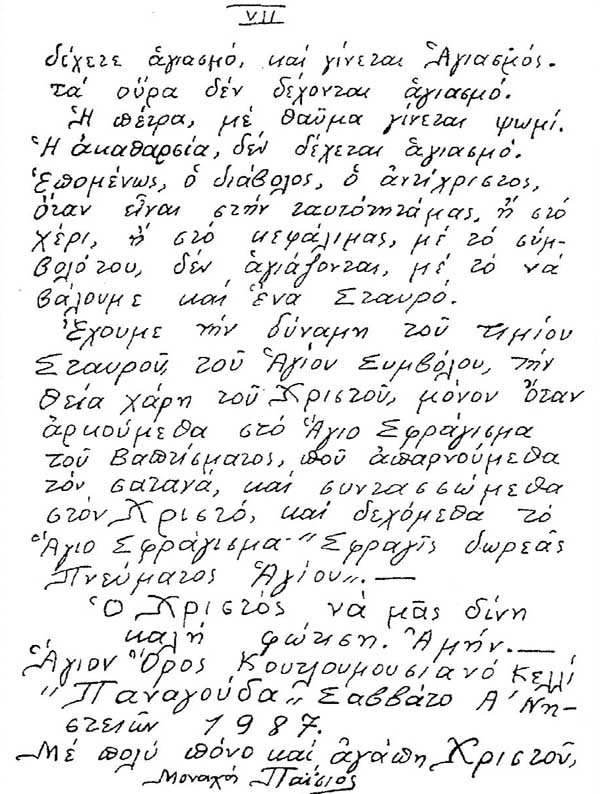 VII
δέχετε ἁγιασμό, καί γίνεται Ἁγιασμός.
τά οὖρα δέν δέχονται ἁγιασμό.
Ἡ πέτρα, μέ θαῦμα γίνεται ψωμί.
Ἡ ἀκαθαρσία, δέν δέχεται ἁγιασμό.
Ἑπομένως, ὁ διάβολος, ὁ ἀντίχριστος,
ὅταν εἶναι στήν ταυτότητάμας, ἤ στό
χέρι, ἤ στό κεφάλιμας, μέ τό σύμ-
βολότου, δέν ἁγιάζονται, μέ τό νά
βάλουμε καί ἕνα Σταυρό.
Ἔχουμε τήν δύναμη τοῦ τιμίου
Σταυροῦ, τοῦ Ἁγίου Συμβόλου, τήν
θεία χάρη τοῦ Χριστοῦ, μόνον ὅταν
ἀρκούμεθα στό Ἅγιο Σφράγισμα
τοῦ Βαπτίσματος, ποῦ ἀπαρνούμεθα
τόν σατανά, καί συντασσώμεθα
στόν Χριστό, καί δεχόμεθα τό
Ἅγιο Σφράγισμα - "Σφραγῖς δωρεᾶς
Πνεύματος Ἁγίου". —
Ὁ Χριστός νά μᾶς δίνη
καλή φώτιση. Ἀμήν. —
Ἅγιον Ὄρος Κουτλουμουσιανό Κελλί
"Παναγούδα" Σαββάτο Α΄ Νη-
στειῶν 1987.
Μέ πολύ πόνο καί ἀγάπη Χριστοῦ,
Μοναχός Παΐσιος